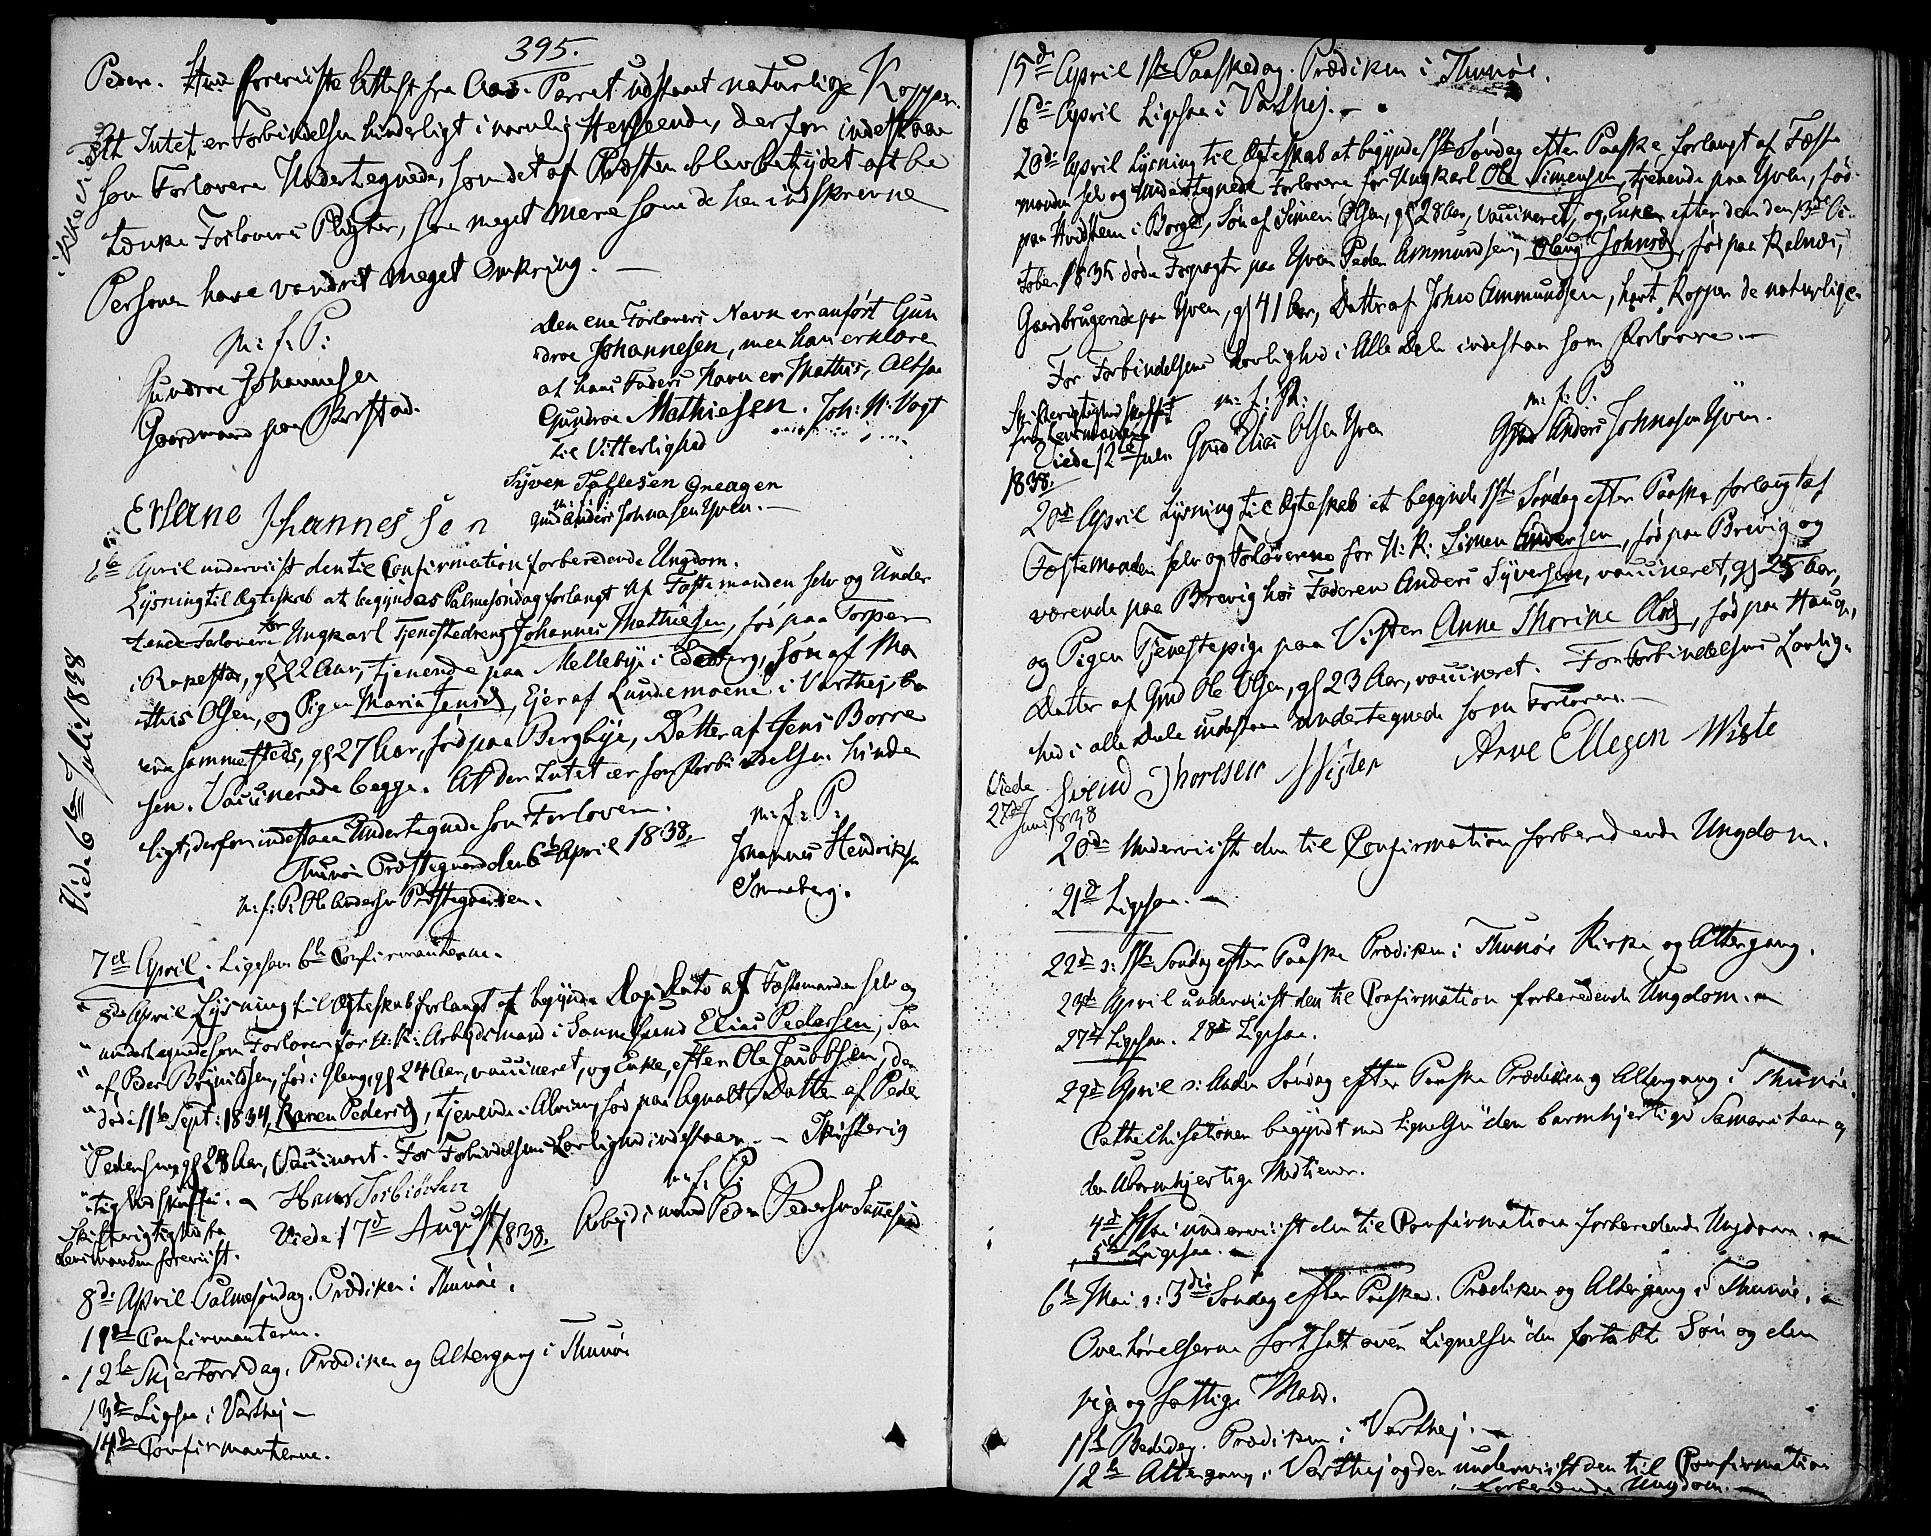 395.
Peder. Hun foreviiste Attest fra Aas. Parret udstaaet naturlige Kopper.
At Intet er Forbindelsen hinderligt i navnlig Henseende, derfor indestaae
som Forlovere Undertegnede, som det af Præsten blev betydet at be
tænke Forloveres Pligter, saa meget mere som de her indskrevne
Personer have vandret meget omkring. —
m: f: P:
Gundroe Johannesen
Gaardmand paa
Den ene Forlovers Navn er anført Gun
droe Johannesen, men han erklærer
at hans Faders Navn er Mathis, Altsaa
Gundroe Mathiesen. Joh: N: Vogt
til Vitterlighed
Syver
m: f: P:
Gmd Anders Johnasen Yven. —
Erlane Jhannessen
6te April underviist den til Confirmation forberedende Ungdom.
Lysning til Ægteskab at begyndes Palmesøndag forlangt af Fæstemanden selv og Under
tegnede Forlovere for Ungkarl Tjenestedreng Johannes Mathiesen, fød paa Torper
i Rakestad, gl 22 Aar, tjenende paa Mellebye i Edsberg, Søn af Ma
this Olsen, og Pigen Maria Jensd, Ejer af Lundemoene i Varthej, bo
ende sammesteds, gl 27 Aar, fød paa Bergbye, Datter af Jens Borre
sen. Vaccinerede begge. At der Intet er for Forbindelsen hinder
ligt, derfor indestaae Undertegnede som Forlovere.
Thunøe Præstegaard den 6te April 1838.
m: f: P: Ole Andersen Præstegaarden.
m: f: P:
Johannes Hendriksen
Inneberg.
Viede 6te Juli 1838
7de April. Ligesom 6te Confirmanterne.
8de April Lysning til Ægteskab forlangt at begynde Dags Dato af Fæstemanden selv og
undertegnede som Forlovere for U: K: Arbejdsmand i Sannesund Elias Pedersen, Søn
af Peder Brynildsen, fød i Haug, gl 24 Aar, vaccineret, og Enke, efter Ole Jacobsen, den
døde 11te Sept: 1834, Karen Pedersd, tjenende i Alvim, fød paa Agnalt, Datter af Peder
Pedersen, gl 28 Aar, Vaccineret. For Forbindelsens Lovlighed indestaaer. — Skifterig
tighed skaffes. — Hans Torbiørnsen
m: f: P:
Arbejdsmand Peder Pedersen Sannesund
Skifterigtighed fra
Lensmanden foreviist.
Viede 17de August 1838.
8de April Palmesøndag. Prædiken i Thunøe.
11te Confirmanterne.
12te Skjertorsdag. Prædiken og Altergang i Thunøe
13de Ligesaa i Varthej —
14de Confirmanterne.
15de April 1ste Paaskedag. Prædiken i Thunøe.
16de April Ligesaa i Varthej. —
20de April Lysning til Ægteskab at begynde 1ste Søndag efter Paaske forlangt af Fæste
manden selv og Undertegnede Forlovere for Ungkarl Ole Simensen, tjenende paa Yven, fød
paa Hvidsteen i Borge, Søn af Simen Olsen, gl 28 Aar, vaccineret, og Enken efter den den 13de Oc
tober 1835 døde Forpagter paa Yven Peder Ammundsen, Olaug Johnsd, fød paa Kalnæs,
Gaardbrugerinde paa Yven, gl 41 Aar, Datter af John Ammundsen, havt Kopper de naturlige.
For Forbindelsens Lovlighed i Alle Dele indestaae som Forlovere. —
m: f: P:
Gmd Elias Olsen Yven
m: f: P:
Gmd Anders Johnasen Yven.
Skifterigtighed skaffet
fra Lensmanden
Viede 12te Juli
1838.
20de April Lysning til Ægteskab at begynde 1ste Søndag efter Paaske forlangt af
Fæstemanden selv og Forloverne for U: K: Simen Andersen, fød paa Brevig og
værende paa Brevig hos Faderen Anders Syversen, vaccineret, gl 25 Aar,
og Pigen Tjenestepige paa Visten Anne Thorine Olsd, fød paa Hauge,
Datter af Gmd Ole Olsen, gl 23 Aar, vaccineret. For Forbindelsens Lovlig-
hed i alle Dele indestaae undertegnede som Forlovere. —
Svend Thoresen Wister
Arve Ellegen Wiste
Viede
27de Juni 1838
20de Underviist den til Confirmation forberedende Ungdom.
21de Ligesaa. —
22de o: 1ste Søndag efter Paaske Prædiken i Thunøe Kirke og Altergang.
23de April underviist den til Confirmation forberedende Ungdom. —
27de Ligesaa. 28de Ligesaa.
29de April o: Anden Søndag efter Paaske Prædiken og Altergang i Thunøe.
Cathechisationen begyndt med Lignelsen "den barmhjertige Samaritan og
den ubarmhjertige Medtiener.
4de Mai underviist den til Confirmation forberedende Ungdom. —
5te Ligesaa. —
6te Mai o: 3die Søndag efter Paaske. Prædiken og Altergang i Thunøe. —
Overhørelserne fortsat over Lignelsen "den fortabte Søn og den
rige og fattige Mand.
11te Bededag. Prædiken i Varthej. —
12te Altergang i Varthej og der underviist den til Confirmation
forberedende Ungdom. —